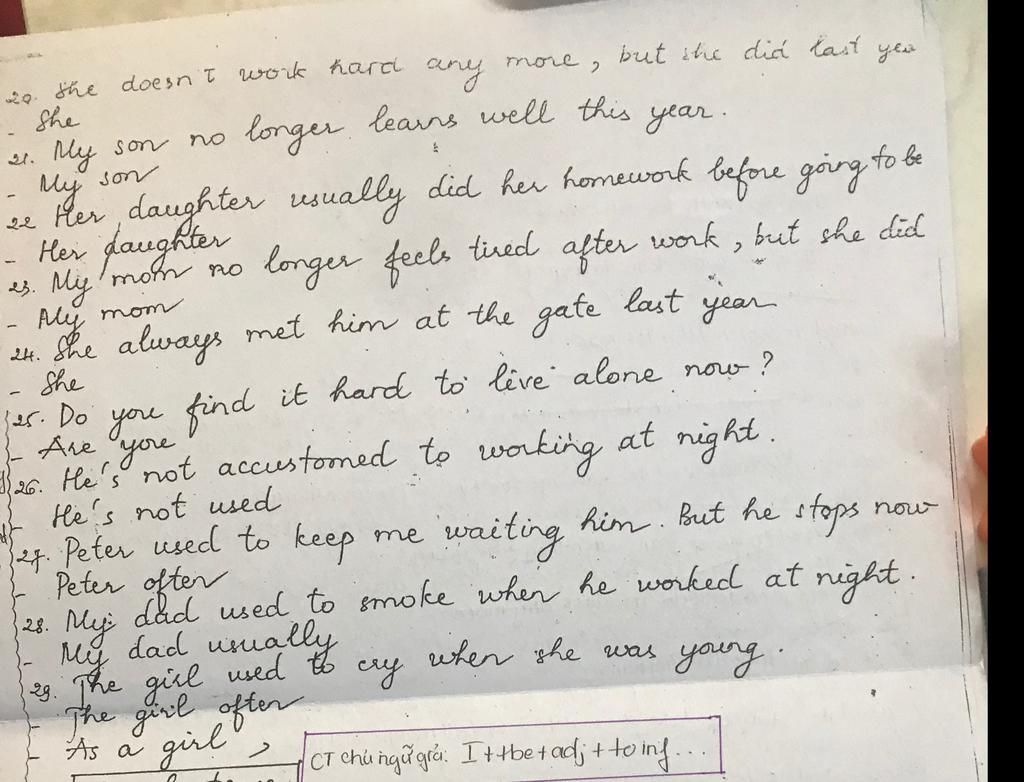 20. She doesn't work hard any more, but she did last yea
- She
21. My son no longer learns well this year.
- My son
22 Her daughter usually did her homework before going to be
- Her daughter
23. My mom no longer feels tired after work, but she did
- My mom
24. She always met him at the gate last year
- She
25. Do you find it hard to live alone now?
- Are you
26. He's not accustomed to working at night.
- He's not used
27. Peter used to keep me waiting him. But he stops now
- Peter often
28. My dad used to smoke when he worked at night.
- My dad usually
29. The girl used to cry when she was young.
- The girl often
- As a girl,
CT chủ ngữ giả: It + be + adj + to inf...